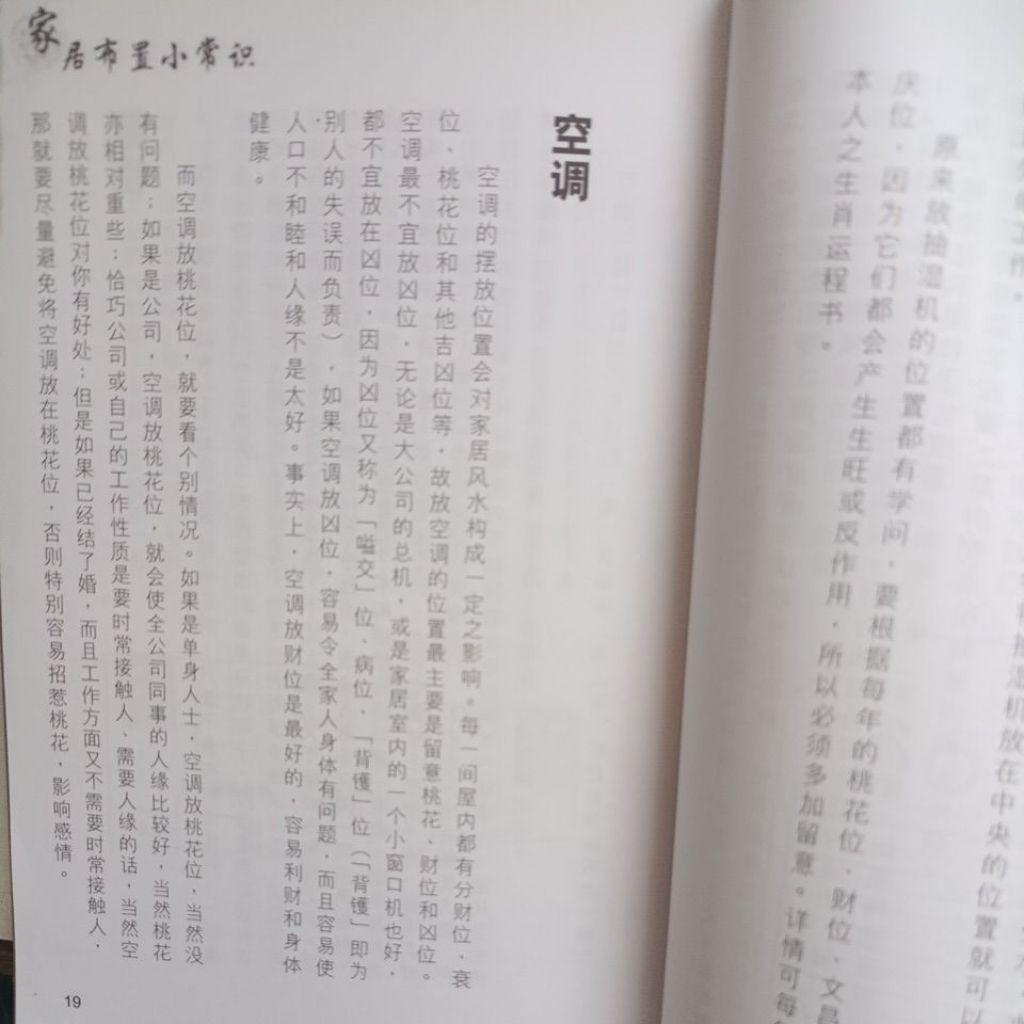 工作。
抽湿机放在中央的位置就可以
原来放抽湿机的位置都有学问，要根据每年的桃花位、财位、文昌
庆位，因为它们都会产生生旺或反作用，所以必须多加留意。详情可每
本人之生肖运程书。
家居布置小常识
空调
空调的摆放位置会对家居风水构成一定之影响。每一间屋内都有分财位，衰
位、桃花位和其他吉凶位等，故放空调的位置最主要是留意桃花、财位和凶位。
空调最不宜放凶位，无论是大公司的总机，或是家居室内的一个小窗口机也好，
都不宜放在凶位，因为凶位又称为「嗌交」位、病位、「背镬」位（「背镬」即为
别人的失误而负责），如果空调放凶位，容易令全家人身体有问题，而且容易使
人口不和睦和人缘不是太好。事实上，空调放财位是最好的，容易利财和身体
健康。
而空调放桃花位，就要看个别情况。如果是单身人士，空调放桃花位，当然没
有问题；如果是公司，空调放桃花位，就会使全公司同事的人缘比较好，当然桃花
亦相对重些；恰巧公司或自己的工作性质是要时常接触人、需要人缘的话，当然空
调放桃花位对你有好处；但是如果已经结了婚，而且工作方面又不需要时常接触人，
那就要尽量避免将空调放在桃花位，否则特别容易招惹桃花，影响感情。
19